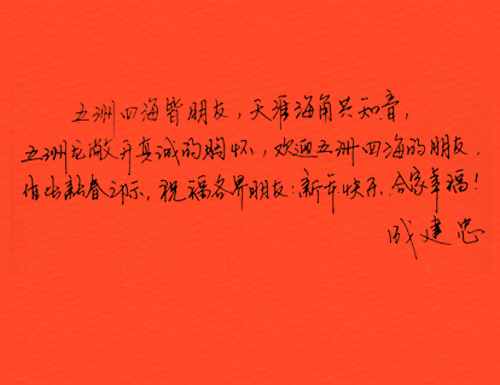 五洲四海皆朋友，天涯海角共知音，
五洲龙敞开真诚的胸怀，欢迎五洲四海的朋友。
值此新春之际，祝福各界朋友：新年快乐、合家幸福！
成建忠